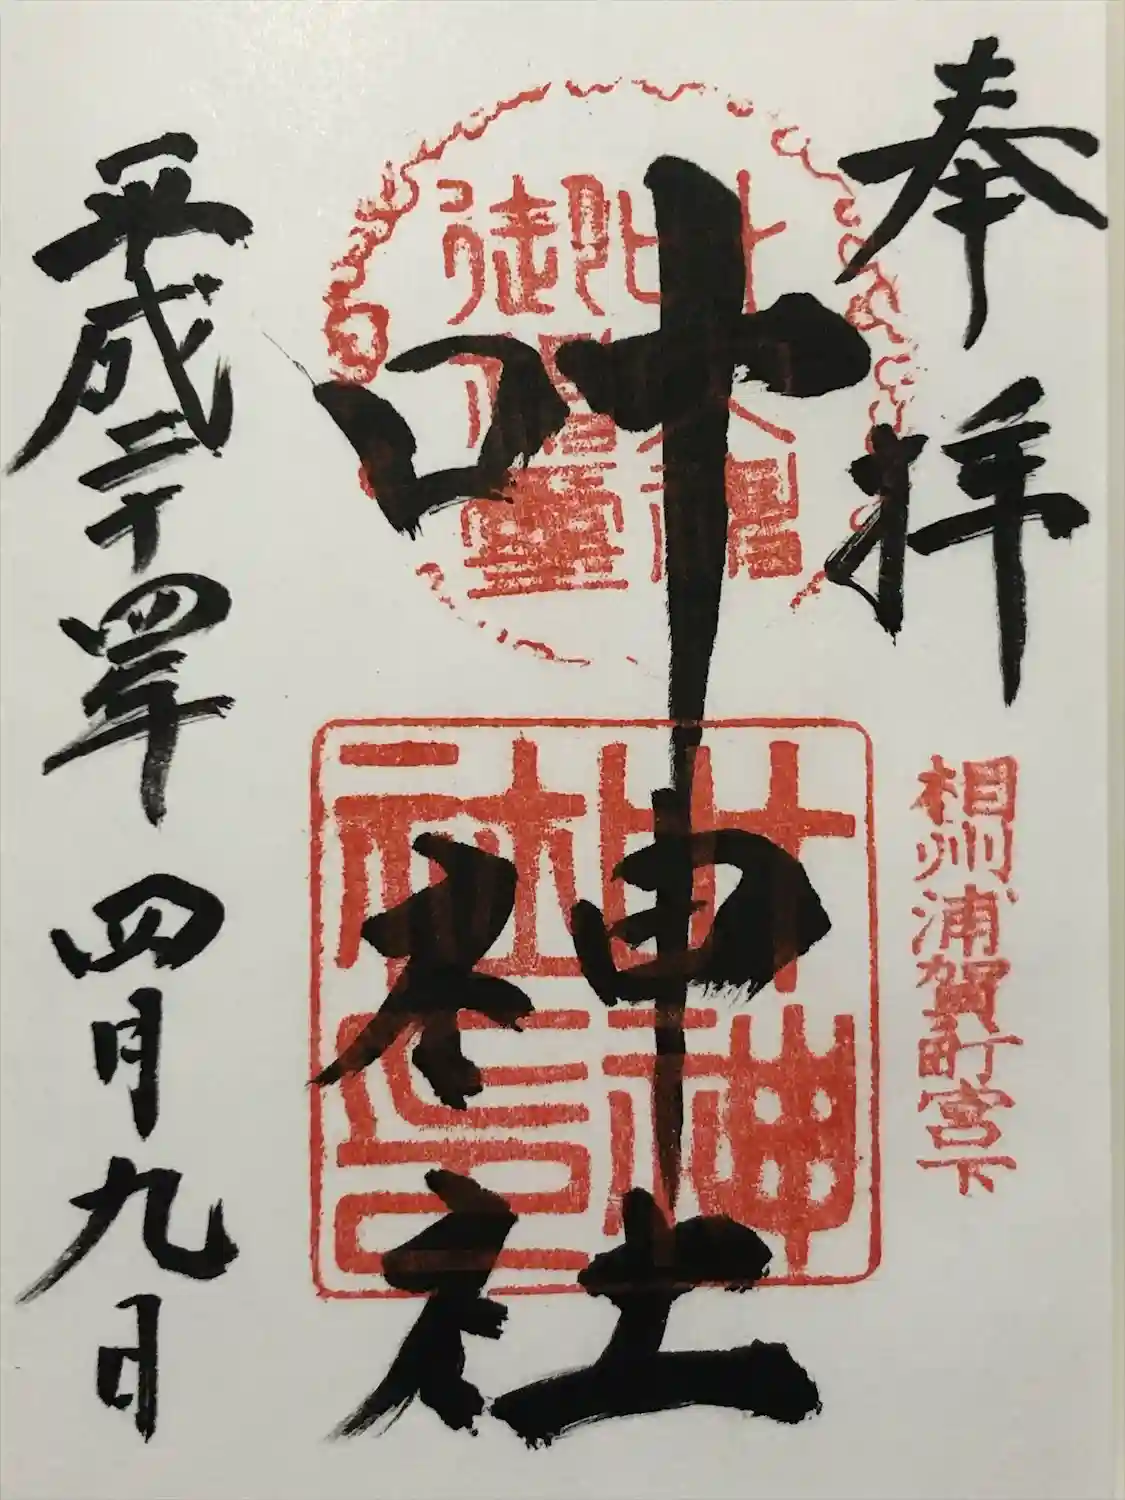 奉拝
相州浦賀町宮下
叶神社
叶神社印
平成二十四年四月九日